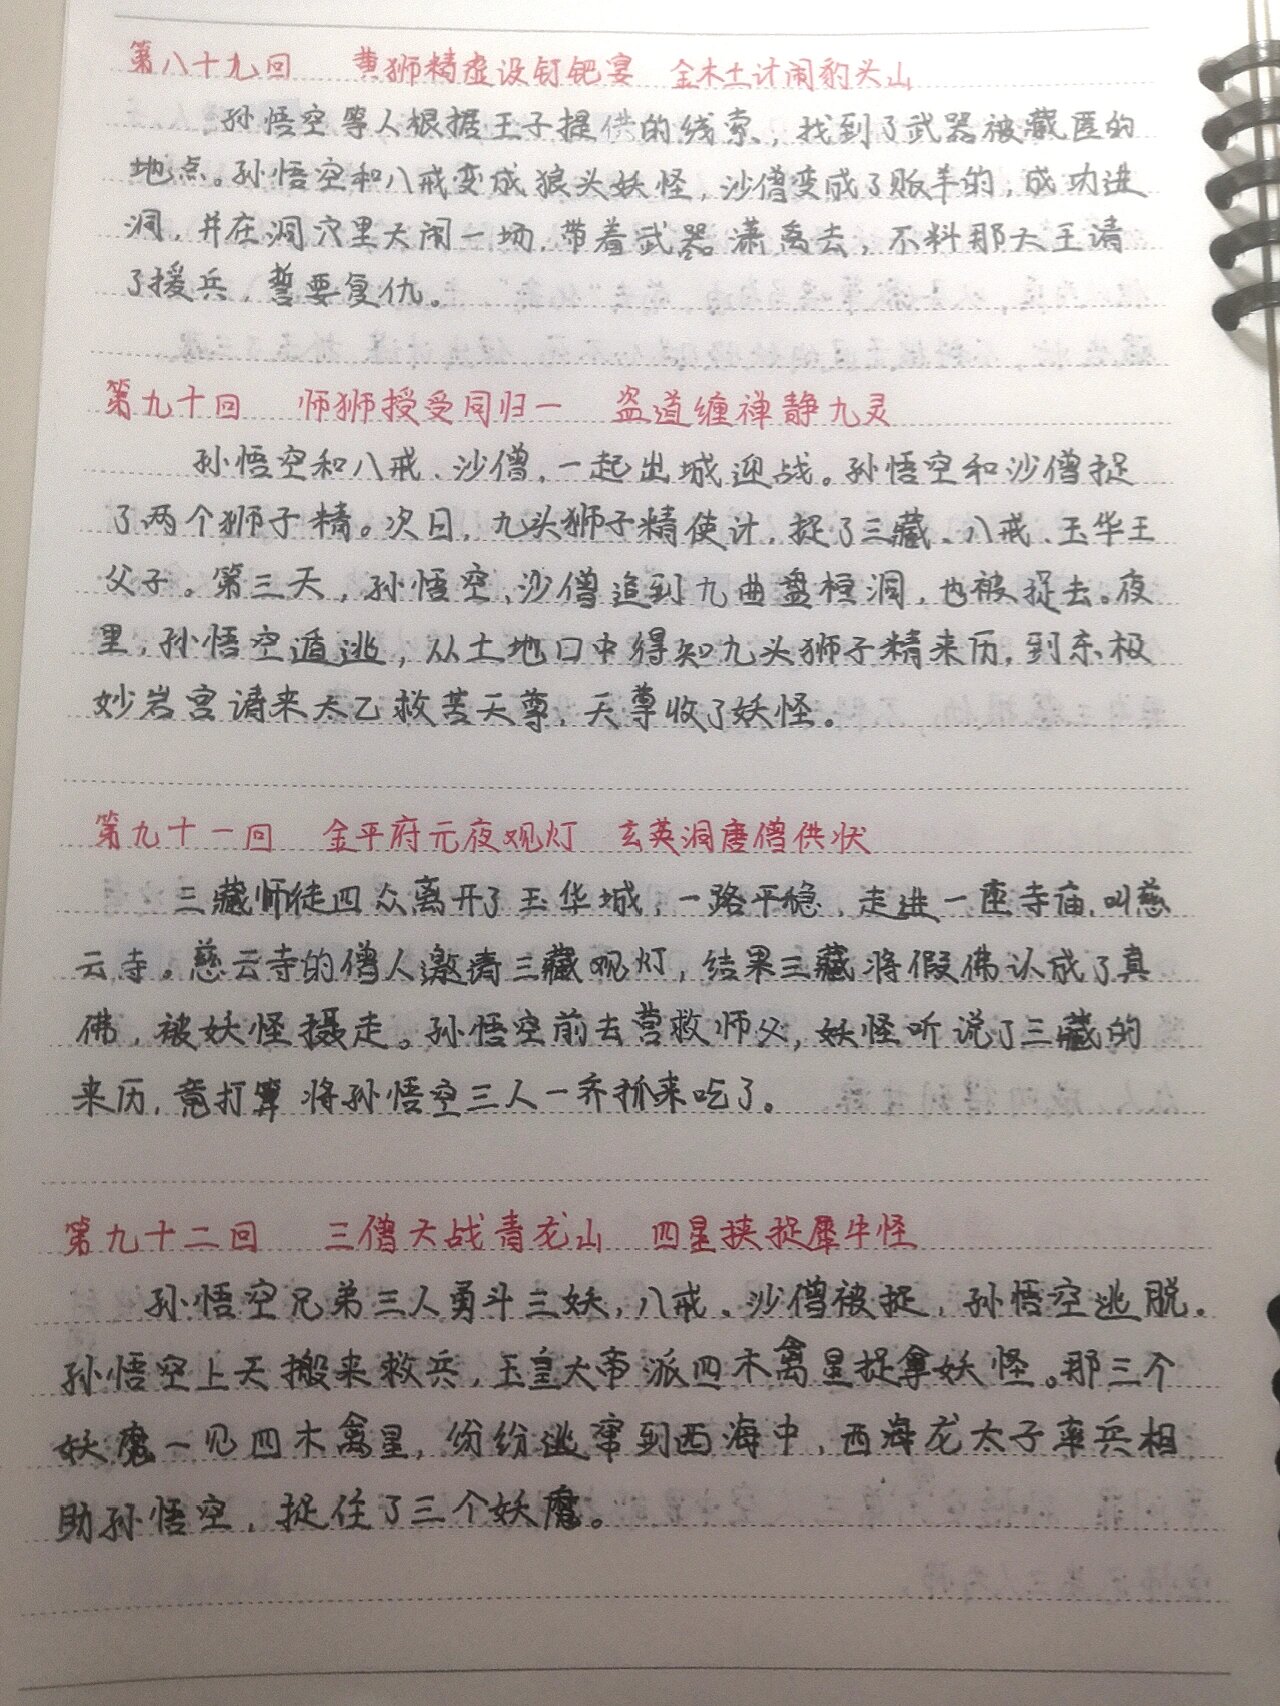 第八十九回 黄狮精虚设钉钯宴 金木土计闹豹头山
孙悟空等人根据王子提供的线索，找到了武器被藏匿的
地点。孙悟空和八戒变成狼头妖怪，沙僧变成了贩羊的，成功进
洞，并在洞穴里大闹一场，带着武器潇离去，不料那大王请
了援兵，誓要复仇。
第九十回 师狮授受同归一 盗道缠禅静九灵
孙悟空和八戒、沙僧，一起出城迎战。孙悟空和沙僧捉
了两个狮子精。次日，九头狮子精使计，捉了三藏、八戒、玉华王
父子。第三天，孙悟空、沙僧追到九曲盘桓洞，也被捉去。夜
里，孙悟空遁逃，从土地口中得知九头狮子精来历，到东极
妙岩宫请来太乙救苦天尊，天尊收了妖怪。
第九十一回 金平府元夜观灯 玄英洞唐僧供状
三藏师徒四众离开了玉华城，一路平稳，走进一座寺庙，叫慈
云寺。慈云寺的僧人邀请三藏观灯，结果三藏将假佛认成了真
佛，被妖怪摄走。孙悟空前去营救师父，妖怪听说了三藏的
来历，竟打算将孙悟空三人一齐抓来吃了。
第九十二回 三僧大战青龙山 四星挟捉犀牛怪
孙悟空兄弟三人勇斗三妖，八戒、沙僧被捉，孙悟空逃脱。
孙悟空上天搬来救兵，玉皇大帝派四木禽星捉拿妖怪。那三个
妖魔一见四木禽星，纷纷逃窜到西海中，西海龙太子率兵相
助孙悟空，捉住了三个妖魔。